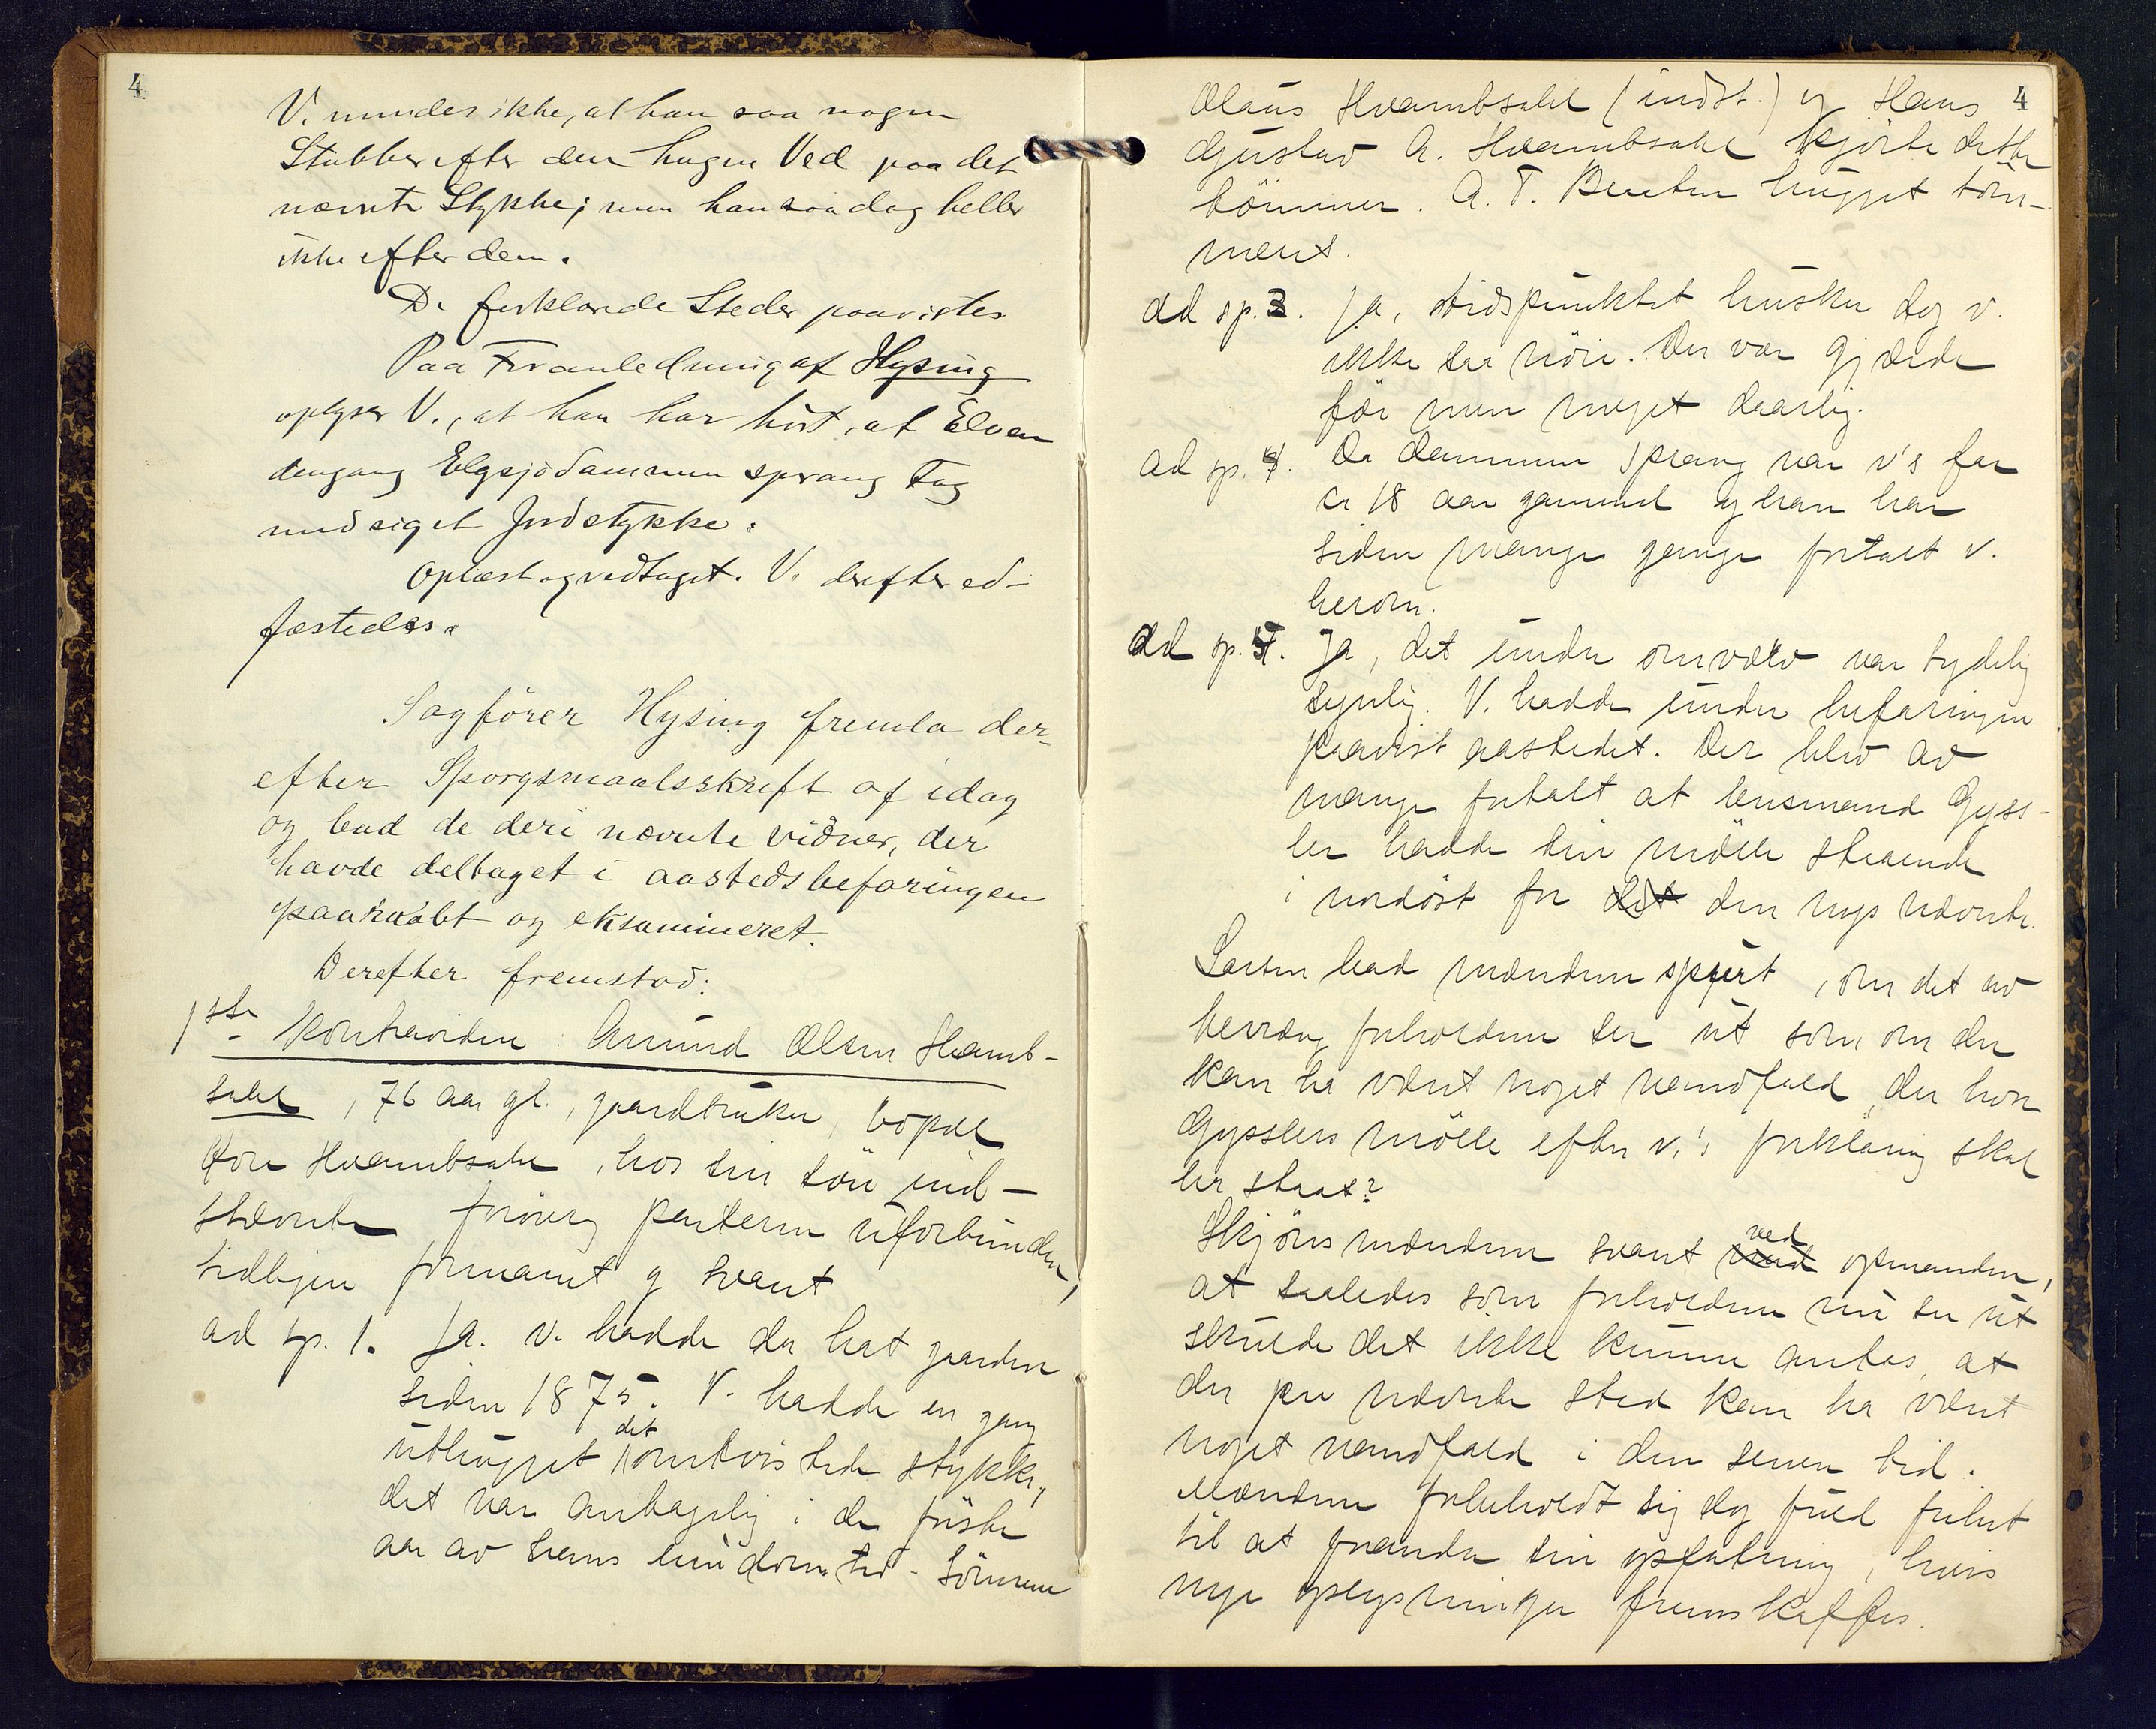 4
V. mindes ikke, at han saa nogen
Stubber efter den hugne Ved paa det
nævnte Stykke; men han saa dog heller
ikke efter dem.
De forklarede Steder paavistes
Paa Foranledning af Hysing
oplyser V., at han har hørt, at Elven
dengang Elgsjødammen sprang Tog
med sig et Jordstykke.
Oplæst og vedtaget. V. derefter ed-
fæstedes.
Sagfører Hysing fremla der-
efter Spørgsmaalsskrift af idag
og bad de deri nævnte vidner, der
havde deltaget i aastedsbefaringen
paaraabt og eksamineret.
Derefter fremstod:
1ste Kontravidne: Amund Olsen Hvamb-
sahl, 76 aar gl., gaardbruker, bopæl
Hvambsahl, hos sin søn ind-
stevnte forøvrig parterne uforbunden,
lidligen formanet og svart
ad sp. 1. Ja. V. hadde da hat gaarden
siden 1875. V. hadde en gang
uthugget det omtvistede stykke,
det var antagelig i de første
aar av hans eiendomstid. Sønnene
4
Olaus Hvambsahl (indst.) og Hans
Gustav A. Hvambsahl kjørte dette
tømmer. A. T. Braaten hugget tøm-
meret.
ad sp. 3. Ja, tidspunktet husker dog v.
ikke saa nøie. Der var gjærde
før men meget daarlig.
ad sp. 4. Da dammen sprang var v's far
ca 18 aar gammel og han har
siden mange gange fortalt v.
herom.
ad sp. 5. Ja, det øvre var tydelig
synlig. V. hadde under befaringen
paavist aastedet. Der blev av
mange fortalt at lensmand Gyss-
ler hadde sin mølle staaende
i nordøst for det den nys nævnte.
Larsen bad mændene spurt, om det av
forholdene ser ut som om der
kan ha været noget vandfald der hvor
Gysslers mølle efter v.'s forklaring skal
ha staat?
Skjønsmændene svart ved opmanden,
at saaledes som forholdene nu ser ut
skulde det ikke kunne antas, at
der paa nævnte sted kan ha været
noget vandfald i den senere tid.
Mændene forbeholdt sig dog fuld frihet
til at forandre sin opfatning, hvis
nye oplysninger fremskaffes.